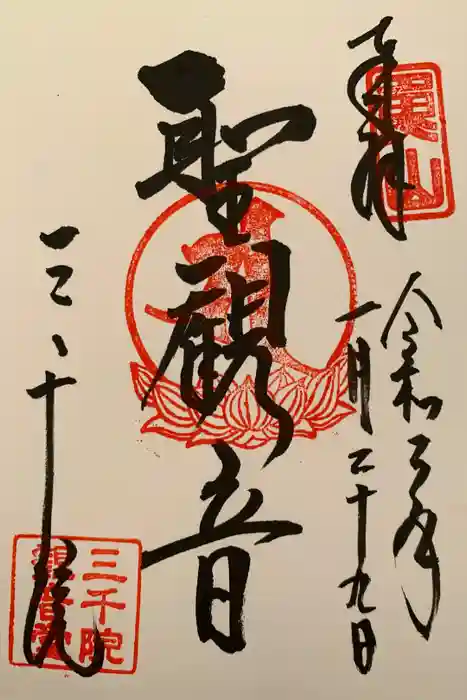 奉拝
魚山
令和二年
一月二十九日
聖観音
三千院
三千院
観音堂